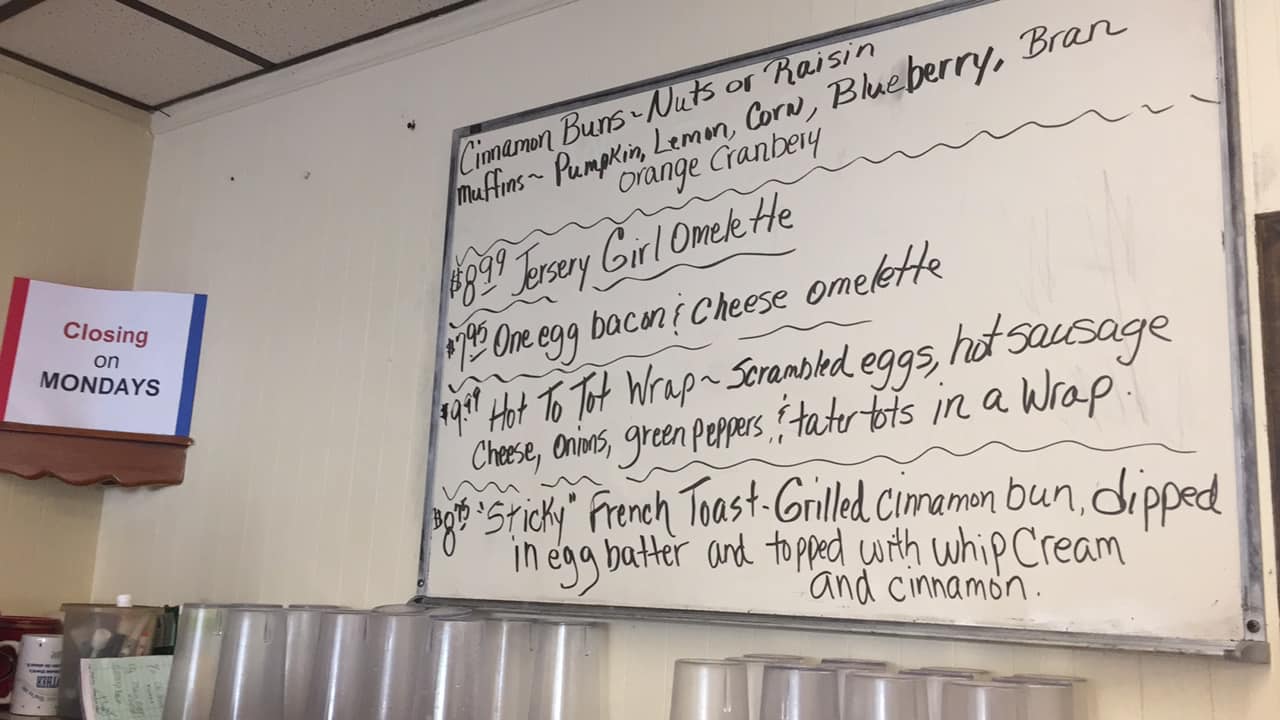 Cinnamon Buns~Nuts or Raisin
Muffins~ Pumpkin, Lemon, Corn, Blueberry, Bran
orange Cranbery
$8.99 Jersery Girl Omelette
$7.95 One egg bacon & Cheese omelette
$9.99 Hot To Tot Wrap~Scrambled eggs, hot sausage
Cheese, onions, green peppers & tater tots in a Wrap.
$8.75 "Sticky" French Toast-Grilled cinnamon bun, dipped
in egg batter and topped with whip Cream
and cinnamon.
Closing
on
MONDAYS